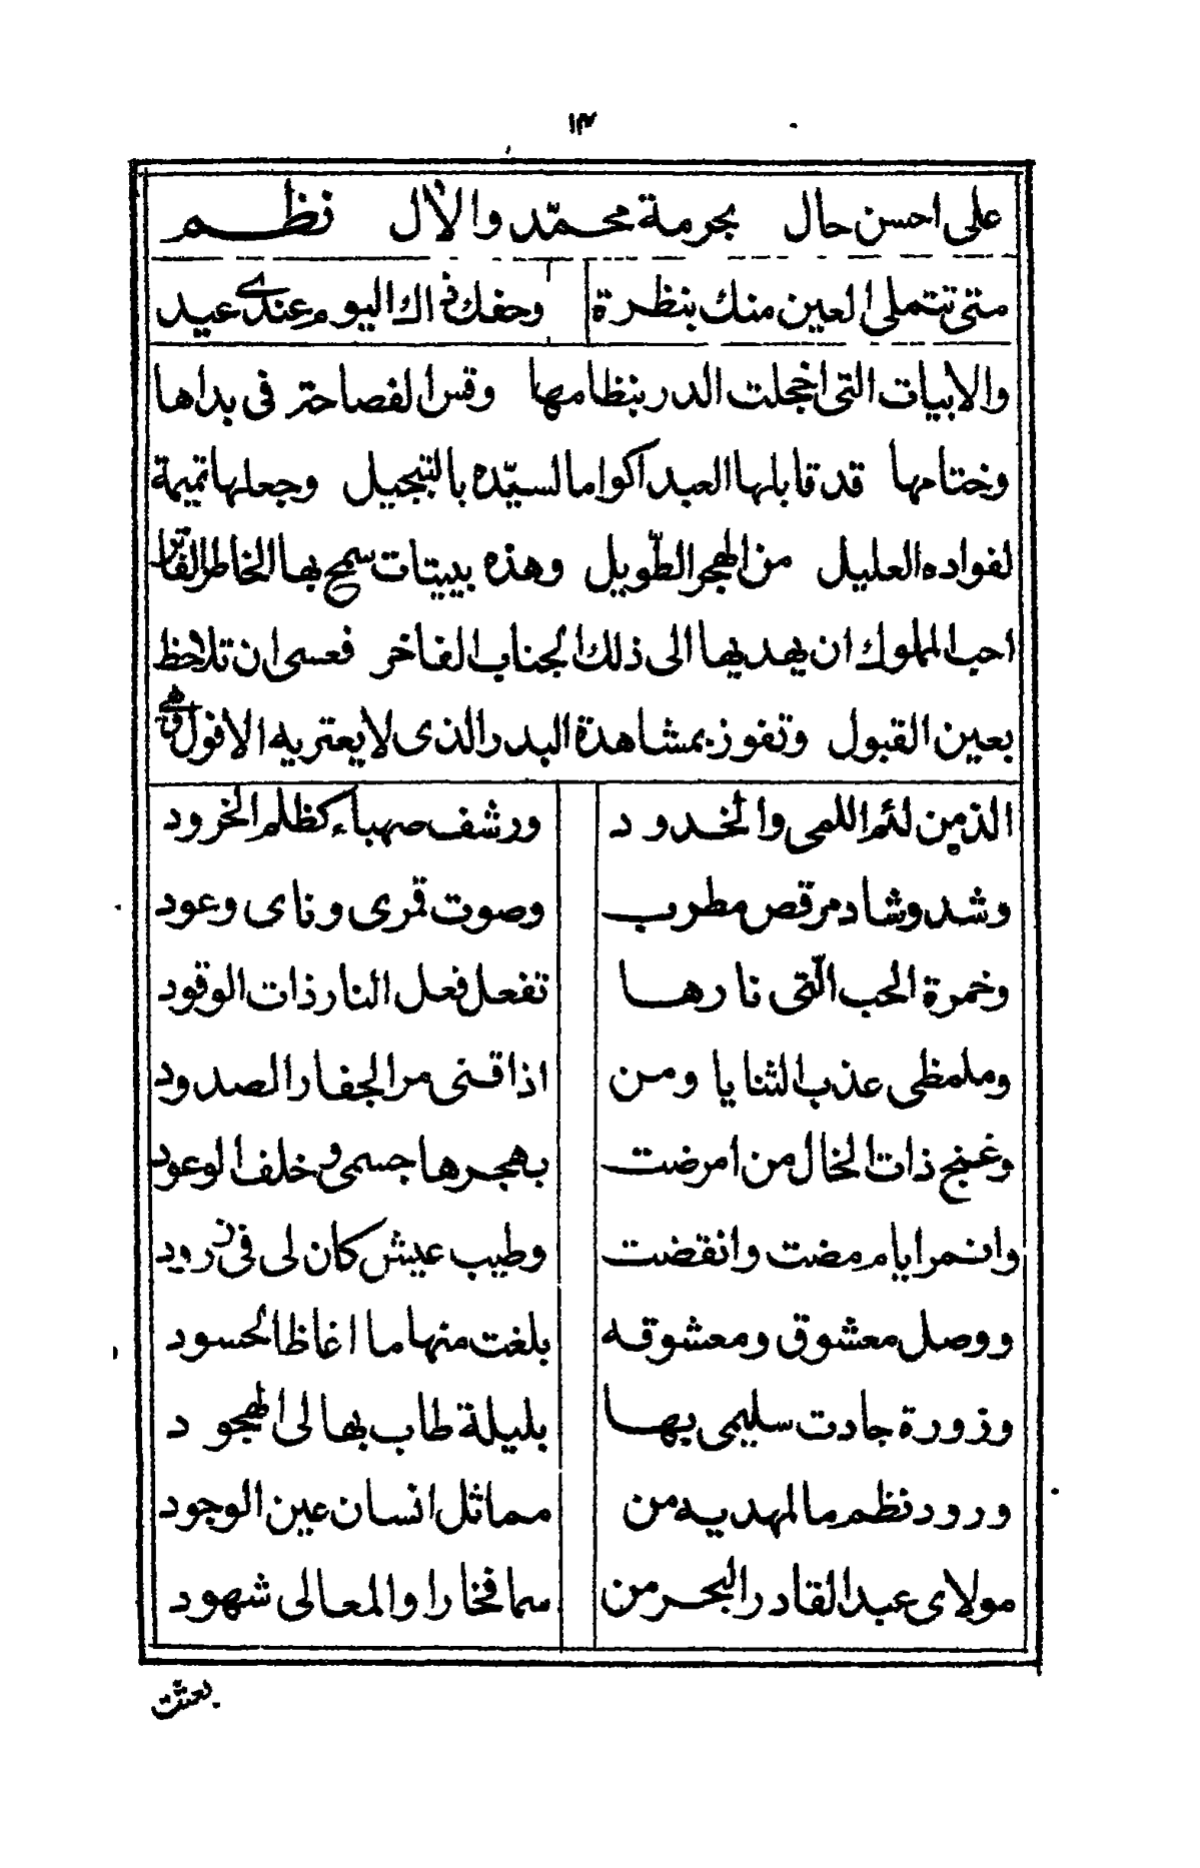 ١٣
على احسن حال بجرمة محمّد والآل نظم
متى تتملى العين منك بنظرة وحفك فى اك اليوم عندى عيد
والابيات التى اخجلت الدر بنظامها وقس الفصاحتر فى بداها
وختامها قد قابلها العبد اكواما لسيّده بالتبجيل وجعلها تميمة
لفواده العليل من الهجر الطّويل وهذه بييتات سمح بها الخاطر الفاتر
احب المملوك ان يهديها الى ذلك الجناب الفاخر فعسى ان تلاحظ
بعين القبول وتفوز بمشاهدة البدر الذى لا يعتريه الافول وهى
الذ من لثم اللمى والخدود ورشف صهباء كظلم الخرود
وشد وشاد مرقص مطرب وصوت قمرى وناى وعود
وخمرة الحب الّتى نارها تفعل فعل النار ذات الوقود
وملمظى عذب الثنايا ومن اذاقنى مر الجفار الصدود
وغنج ذات الخال من امرضت بهجرها جسمى وخلف الوعود
وانمر ايام مضت وانقضت وطيب عيش كان لى فى زرود
ووصل معشوق ومعشوقه بلغت منها ما اغاظ الحسود
وزورة جادت سليمى بها بليلة طاب بها لى الهجود
ورود نظم ما لمهديه من مماثل انسان عين الوجود
مولاى عبد القادر البحر من سما فخارا والمعالى شهود
بعثت